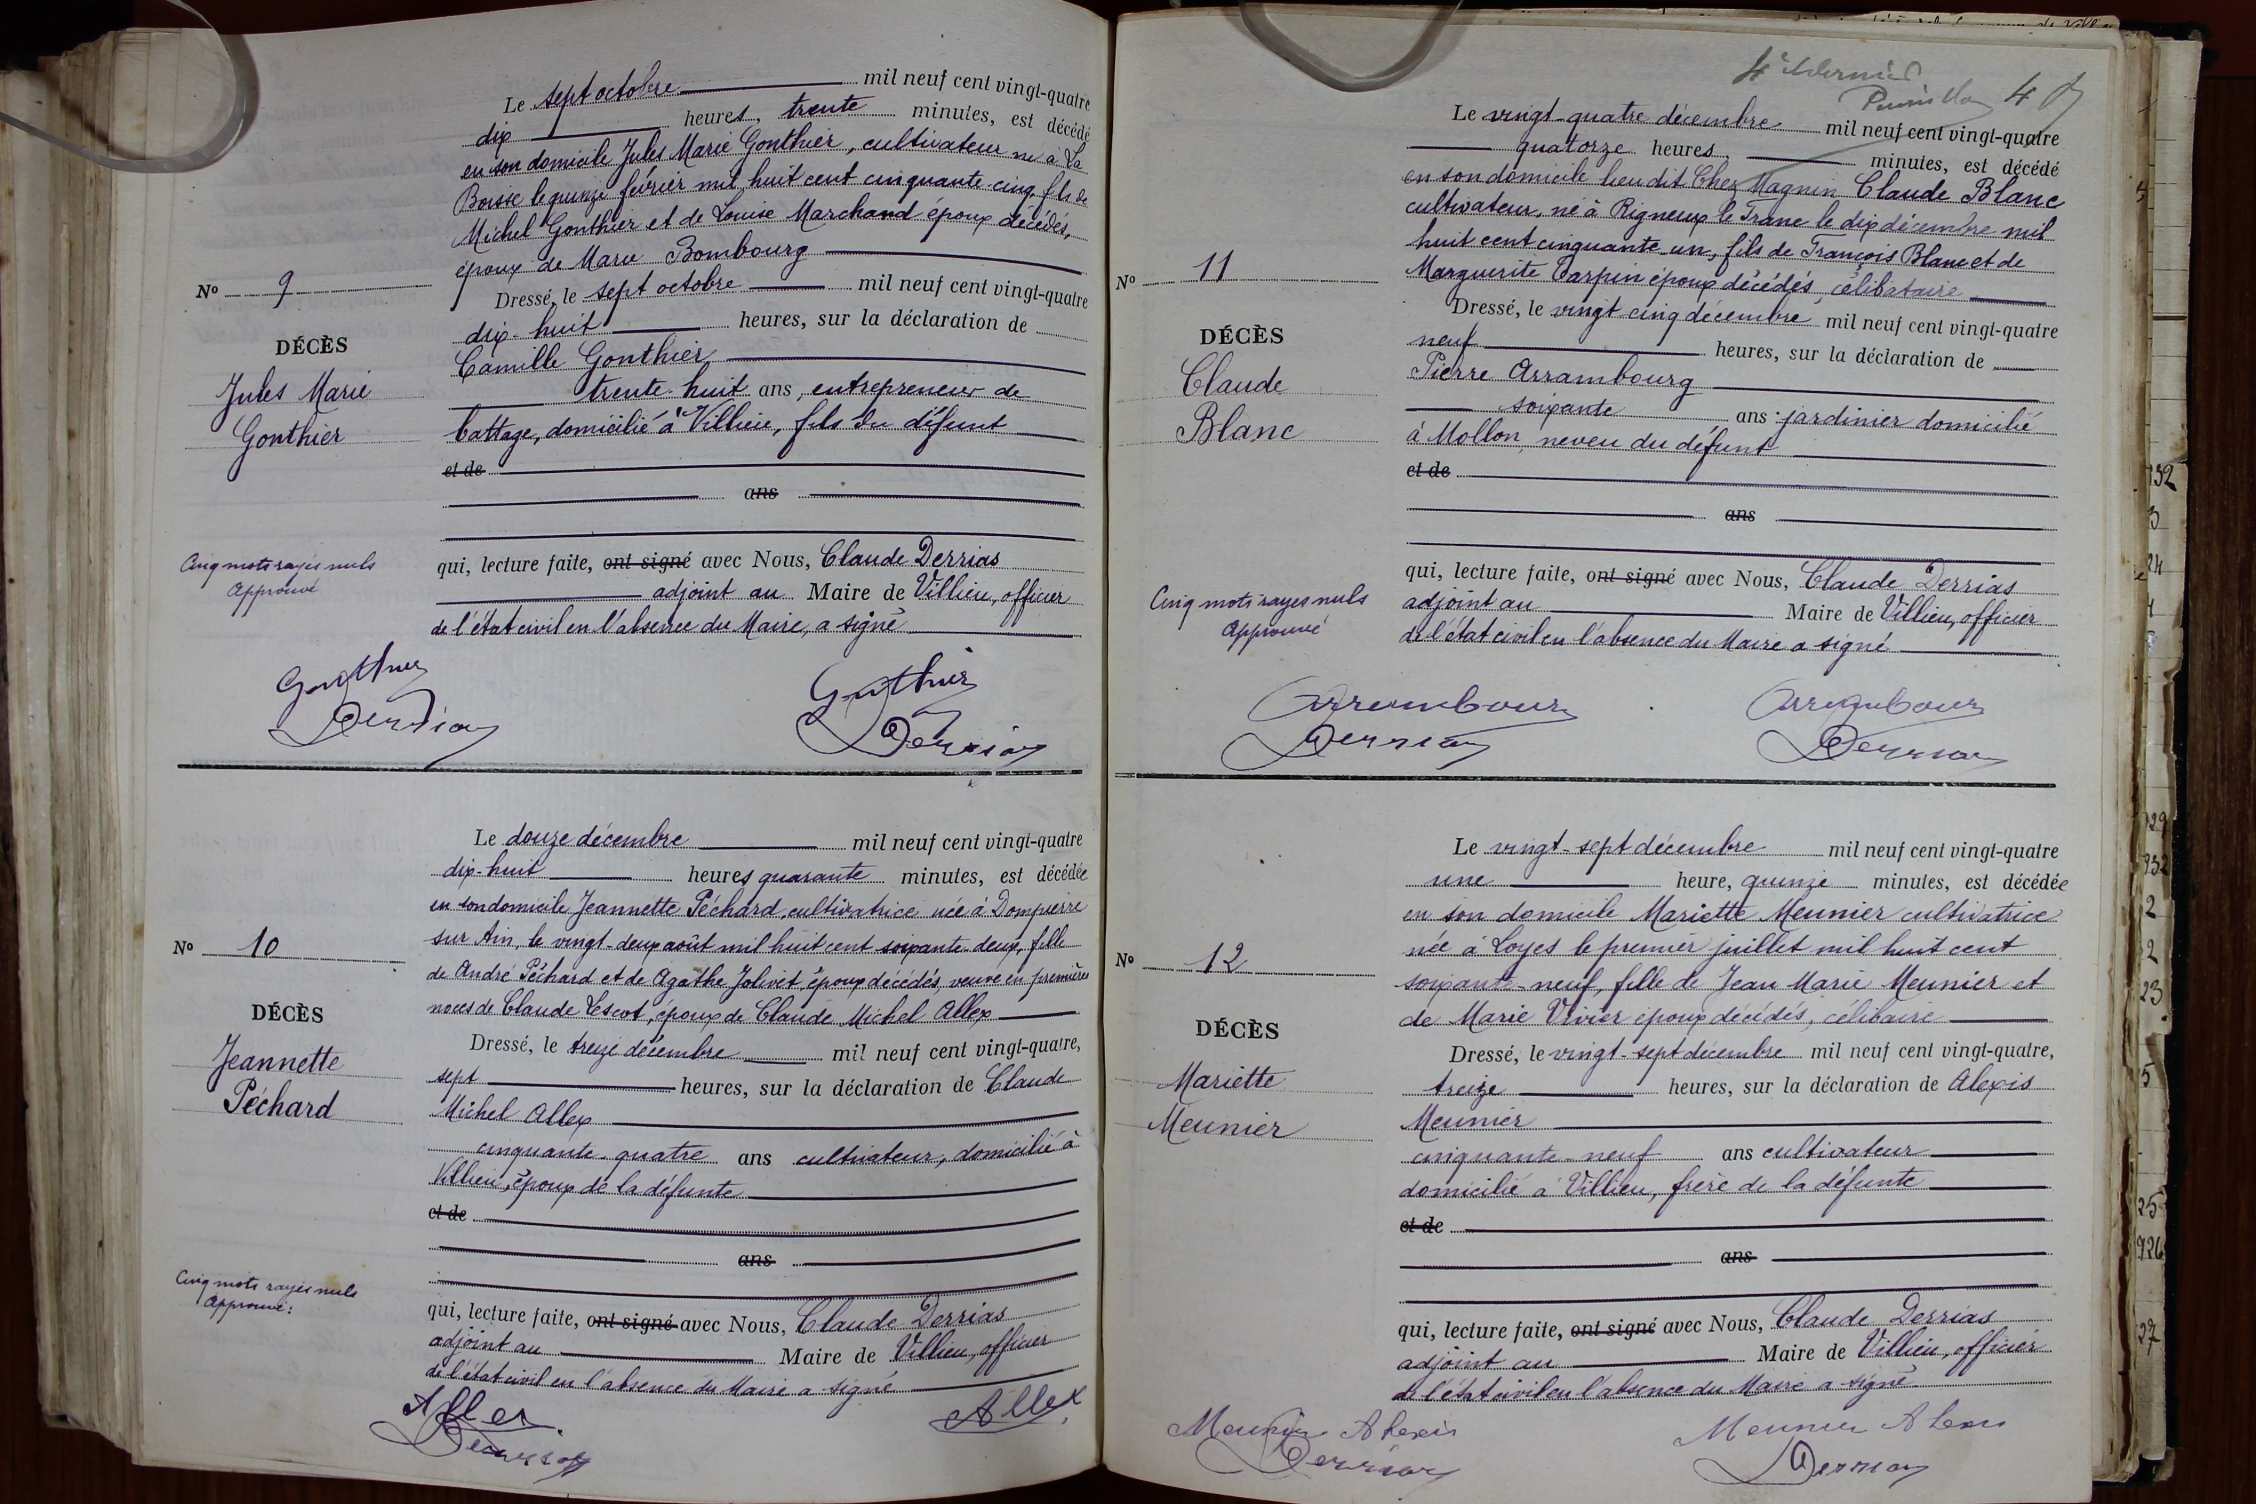 Le sept octobre mil neuf cent vingt-quatre
dix heures, trente minutes, est décédé
en son domicile Jules Marie Gonthier, cultivateur né à La
Boisse le quinze février mil huit cent cinquante-cinq, fils de
Michel Gonthier et de Louise Marchand époux décédés,
époux de Marie Bombourg
Nº 9
Dressé, le sept octobre mil neuf cent vingt-quatre
dix-huit heures, sur la déclaration de
DÉCÈS
Camille Gonthier
Jules Marie
trente-huit ans, entrepreneur de
Gonthier
battage, domicilié à Villieu, fils du défunt
et de
ans
Cinq mots rayés nuls
Approuvé
qui, lecture faite, ont signé avec Nous, Claude Derrias
adjoint au Maire de Villieu, officier
de l'état civil en l'absence du Maire, a signé
Gonthier Gonthier
Derrias Derrias
Le douze décembre mil neuf cent vingt-quatre
dix-huit heures quarante minutes, est décédée
en son domicile Jeannette Péchard, cultivatrice née à Dompierre
sur Ain, le vingt-deux août mil huit cent soixante-deux, fille
Nº 10
de André Péchard et de Agathe Jolivet, époux décédés, veuve en premières
noces de Claude Lescot, époux de Claude Michel Allex
DÉCÈS
Dressé, le treize décembre mil neuf cent vingt-quatre,
Jeannette
sept heures, sur la déclaration de Claude
Péchard
Michel Allex
cinquante-quatre ans cultivateur, domicilié à
Villieu, époux de la défunte
et de
ans
Cinq mots rayés nuls
Approuvé:
qui, lecture faite, ont signé avec Nous, Claude Derrias
adjoint au Maire de Villieu, officier
de l'état civil en l'absence du Maire a signé
Allex Allex
Derrias
4
Le vingt-quatre décembre mil neuf cent vingt-quatre
quatorze heures, minutes, est décédé
en son domicile lieu dit Chez Magnin Claude Blanc
cultivateur, né à Rigneux le Franc le dix décembre mil
huit cent cinquante-un, fils de François Blanc et de
Nº 11
Marguerite Tarpin époux décédés, célibataire
Dressé, le vingt cinq décembre mil neuf cent vingt-quatre
DÉCÈS
neuf heures, sur la déclaration de
Claude
Pierre Arrambourg
Blanc
soixante ans : jardinier domicilié
à Mollon, neveu du défunt
et de
ans
Cinq mots rayés nuls
Approuvé
qui, lecture faite, ont signé avec Nous, Claude Derrias
adjoint au Maire de Villieu, officier
de l'état civil en l'absence du Maire a signé
Arrambourg Arrambourg
Derrias Derrias
Le vingt-sept décembre mil neuf cent vingt-quatre
une heure, quinze minutes, est décédée
en son domicile Mariette Meunier cultivatrice
née à Loyes le premier juillet mil huit cent
Nº 12
soixante-neuf, fille de Jean Marie Meunier et
de Marie Vivier époux décédés, célibaire
DÉCÈS
Dressé, le vingt-sept décembre mil neuf cent vingt-quatre,
Mariette
treize heures, sur la déclaration de Alexis
Meunier
Meunier
cinquante-neuf ans cultivateur
domicilié à Villieu, frère de la défunte
et de
ans
qui, lecture faite, ont signé avec Nous, Claude Derrias
adjoint au Maire de Villieu, officier
de l'état civil en l'absence du Maire a signé
Meunier Alexis Meunier Alexis
Derrias Derrias